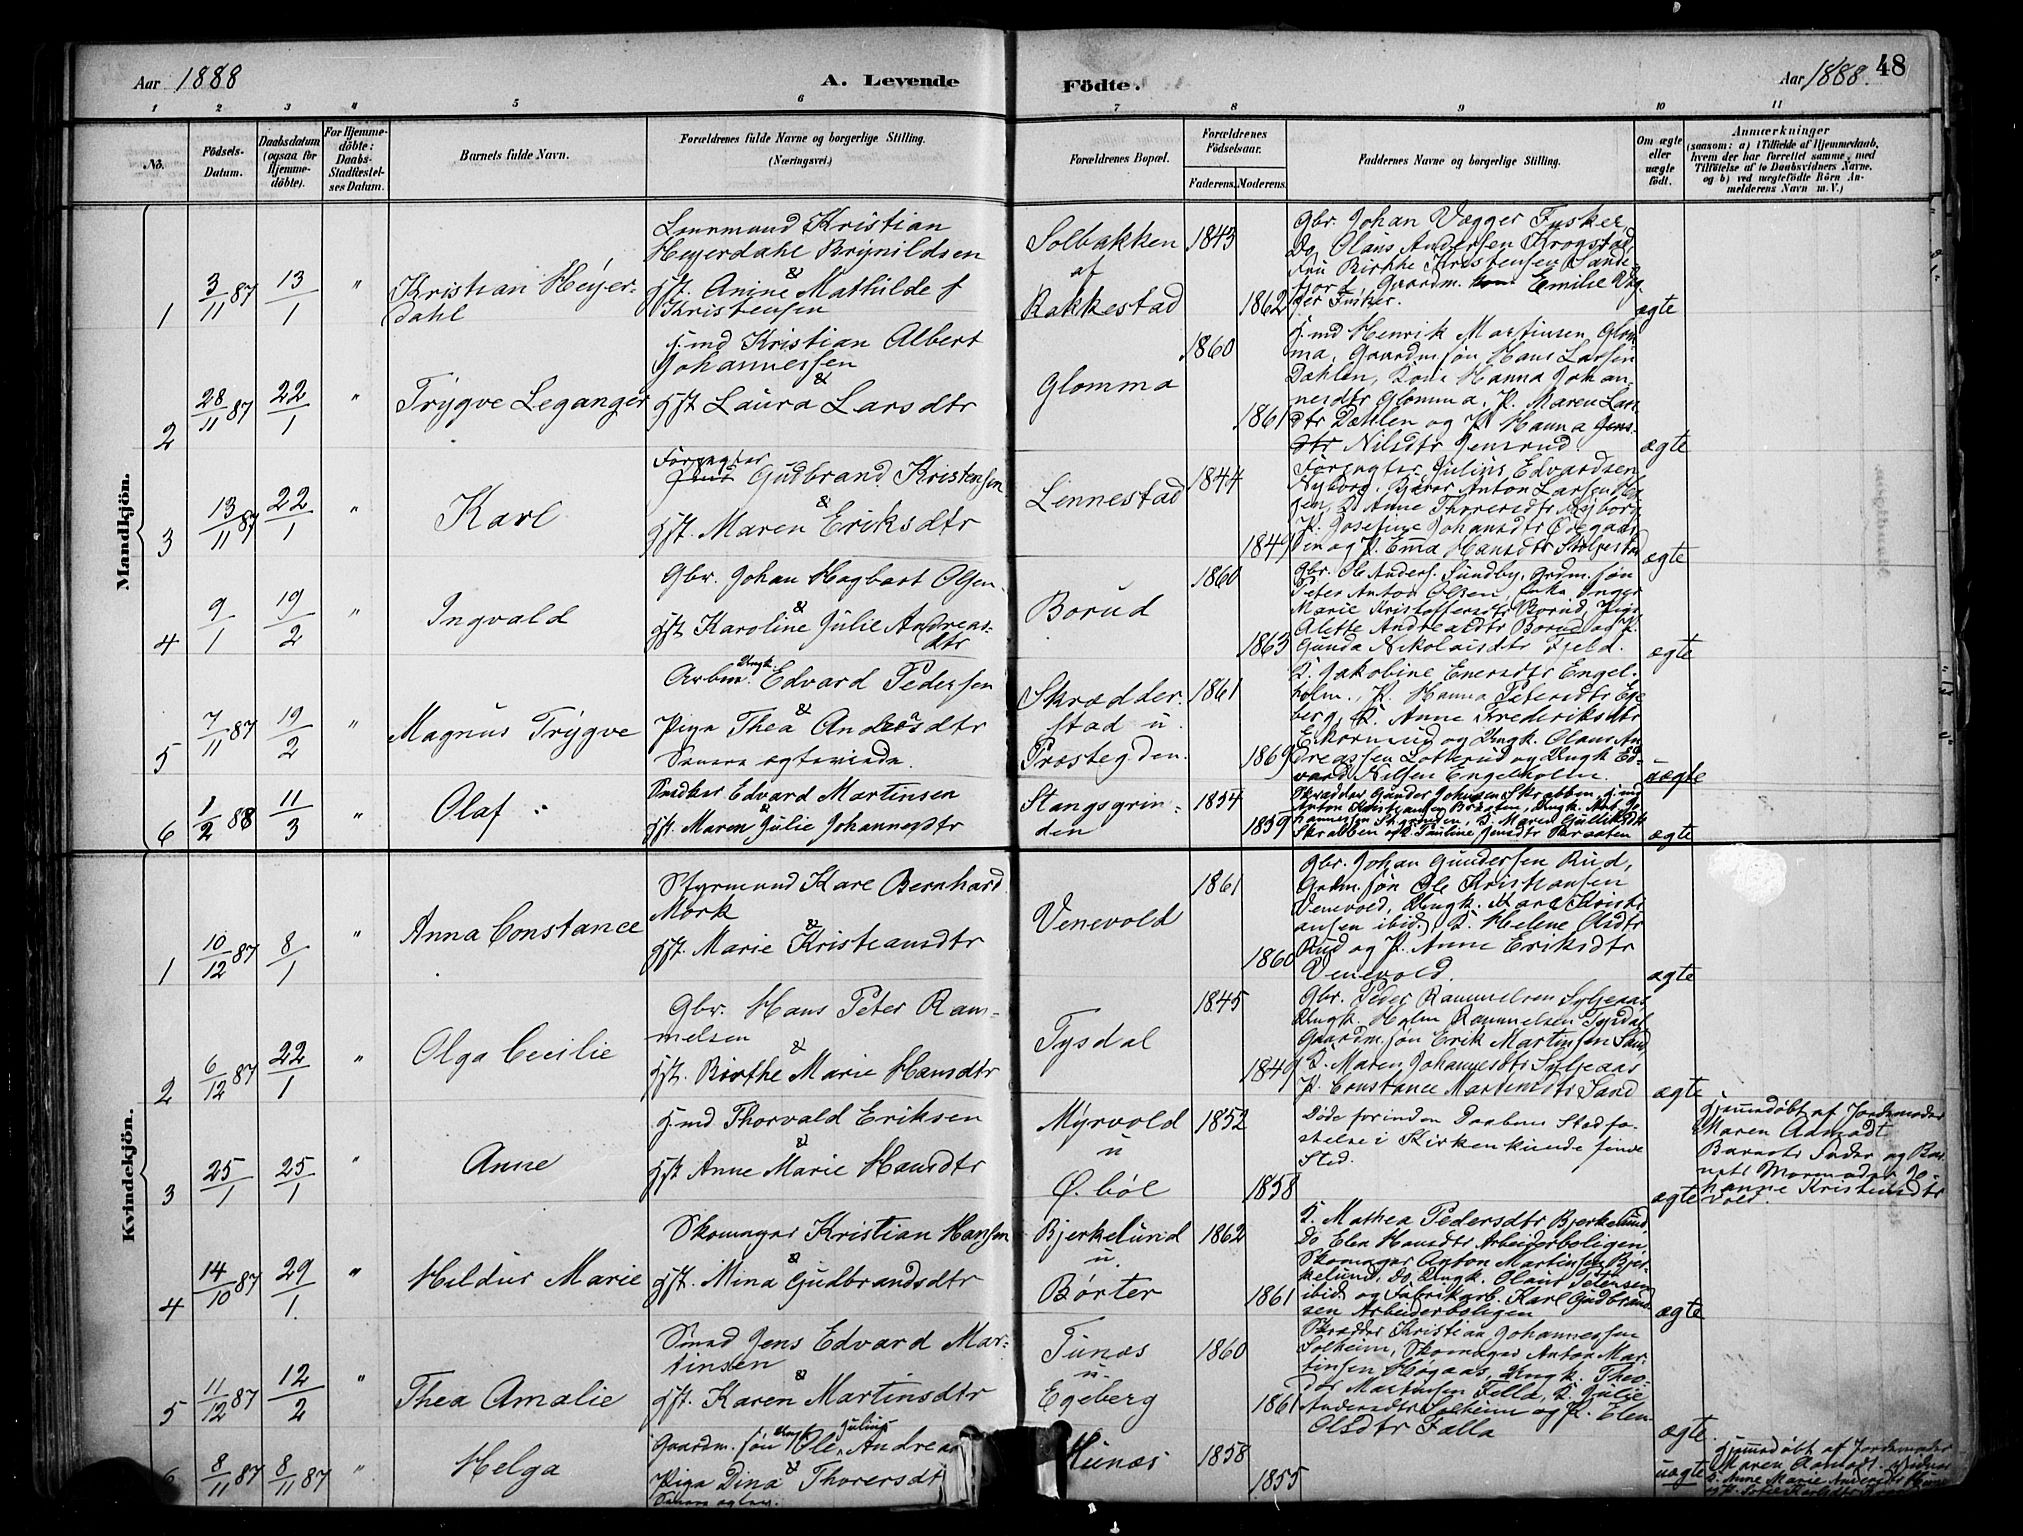 Aar 1888
A. Levende
Födte.
Aar 1888.
48
1 2 3 4 5 6 7 8 9 10 11
No.
Födsels-Datum.
Daabsdatum (ogsaa for Hjemme-döbte).
For Hjemme-döbte: Daabs-Stadfæstel-ses Datum.
Barnets fulde Navn.
Forældrenes fulde Navne og borgerlige Stilling.
(Næringsvei.)
Forældrenes Bopæl.
Forældrenes Födselsaar.
Faderens. Moderens.
Faddernes Navne og borgerlige Stilling.
Om ægte eller uægte födt.
Anmærkninger
(saasom: a) i Tilfælde af Hjemmedaab, hvem der har forrettet samme, med Tilföielse af to Daabsvidners Navne, og b) ved uægtefödte Börn Anmelderens Navn m. V.)
Mandkjön.
1 3/11 87 13/1 " Kristian Heyer-
dahl
Kristian
Heyerdahl Brynildsen
&
Anine Mathilde f
Kristensen
Solbakken
af
Rakkestad
1843
1862
Gbr. Johan Vægger Fusker
Do Olaus Andersen Krogstad
Fru Birthe Kristensen Sande-
fjord, Gaardm. Emilie Væg-
ger Fusker.
ægte
2 28/11 87 22/1 " Trygve Leganger
Kristian Albert
Johannessen
&
Hst Laura Larsdtr
Glomma
1860
1861
Henrik Martinsen Glom-
ma, Gaardm. søn Hans Larsen
Dahlen, Kone Hanna Johan-
nesdtr Glomma, P. Maren Lars-
dtr Dahlen og P. Hanna
Nilsdtr Jensrud.
ægte
3 13/11 87 22/1 " Karl
Forpagter
Gudbrand Kristensen
&
Hst. Maren Eriksdtr
Lennestad
1844
1849
Forpagter Julius Edvardsen
Nyborg, Anton Larsen
Anne Thoresdtr Nyborg
P. Josefine Johansdtr Ødegaar-
den og P. Emma Hansdtr
ægte
4 9/1 19/2 " Ingvald
Gbr. Johan Hagbart Olsen
&
Hst Karoline Julie Andreas-
dtr
Borud
1860
1863
Gbr. Ole Anders. Sundby, Grdm. søn
Peter Anton Olsen, Enke Inger
Marie Kristoffersdtr Borud, Pige
Alette Andreasdtr Borud og P.
Gunda Nikolaisdtr Fjeld.
ægte
5 7/11 87 19/2 " Magnus Trygve
Arbm. Ungk. Edvard Pedersen
&
Pige Thea Andersdtr
Skrædder-
stad u.
Præstegden.
1861
1869
K. Jakobine Enersdtr Engel-
holm, P. Hanna Petersdtr Ege-
berg, K. Anne Frederiksdtr
Ekornrud og Ungk. Olaus An-
dreassen Lotterud og Ungk Ed-
vard Nilsen Engelholm.
uægte
6 1/2 88 11/3 " Olaf
Snedker Edvard Martinsen
&
Hst. Maren Julie Johannesdtr
Stangsgrin-
den
1854
1859
Skrædder Gunder Johnsen Skrabben,
Anton Kristiansen
K. Maren
Skrabben og Pauline Jensdtr
ægte
Kvindekjön.
1 10/12 87 8/1 " Anna Constance
Styrmand Karl Bernhard
Mork
&
Hst. Marie Kristiansdtr
Venevold
1861
1860
Gbr. Johan Gundersen Rud,
Grdm. søn Ole Kristiansen
Venevold, Ungk. Karl Kristi-
ansen ibid, K. Helene Olsdtr
Rud og P. Anne Eriksdtr
Venevold.
ægte
2 6/12 87 22/1 " Olga Cecilie
Gbr. Hans Peter Ram-
melsen
&
Hst. Birthe Marie Hansdtr
Tysdal
1845
1849
Gbr. Peder Rammelsen Syljeaas,
Ungk. Holm Rammelsen Tysdal
Gaardm. søn Erik Martinsen Sand,
K. Maren Johannesdtr Syljeaas
P. Constance Martinsdtr Sand
ægte
3 25/1 25/1 " Anne
Thorvald Eriksen
&
Hst Anne Marie Hansdtr
Myrvold
u
Ø. böl
1852
1858
Døde forinden Daabens Stadfæ-
stelse i Kirken kunde finde
Sted.
ægte
Hjemmedøbt af Jordemoder
Maren Aamodt
Barnets Fader og Bar-
nets Mormoder Jo-
hanne Kristensdtr
4 14/10 87 29/1 " Hildur Marie
Skomager Kristian Hansen
&
Hst. Mina Gudbrandsdtr
Bjerkelund
u.
Børter
1862
1861
K. Mathea Pedersdtr Bjerkelund,
Do Elen Hansdtr Arbeiderboligen,
Skomager Anton Martinsen Bjer-
kelund, Do, Ungk. Olaus Petersen
ibid og Fabrikarb. Karl Gudbrand-
sen Arbeiderboligen
ægte
5 11/12 87 12/2 " Thea Amalie
Smed Jens Edvard Mar-
tinsen
&
Hst. Karen Martinsdtr
Tunæs
u.
Egeberg
1860
1861
Skrædder Kristian Johannessen
Solheim, Skomager Anton Mar-
tinsen Høgaas, Ungk. Theo-
dor Martinsen Fella, K. Julie
Andersdtr Solheim og P. Elen
Olsdtr Falla
ægte
6 8/11 87 8/11 87 " Helga
Gaardm. søn Ungk. Ole Julius Andreas
&
Pige Dina Thorersdtr
Hunæs
1858
1855
uægte
Hjemmedøbt af Jordemoder
Maren Aamodt.
Anne Marie Andersdtr